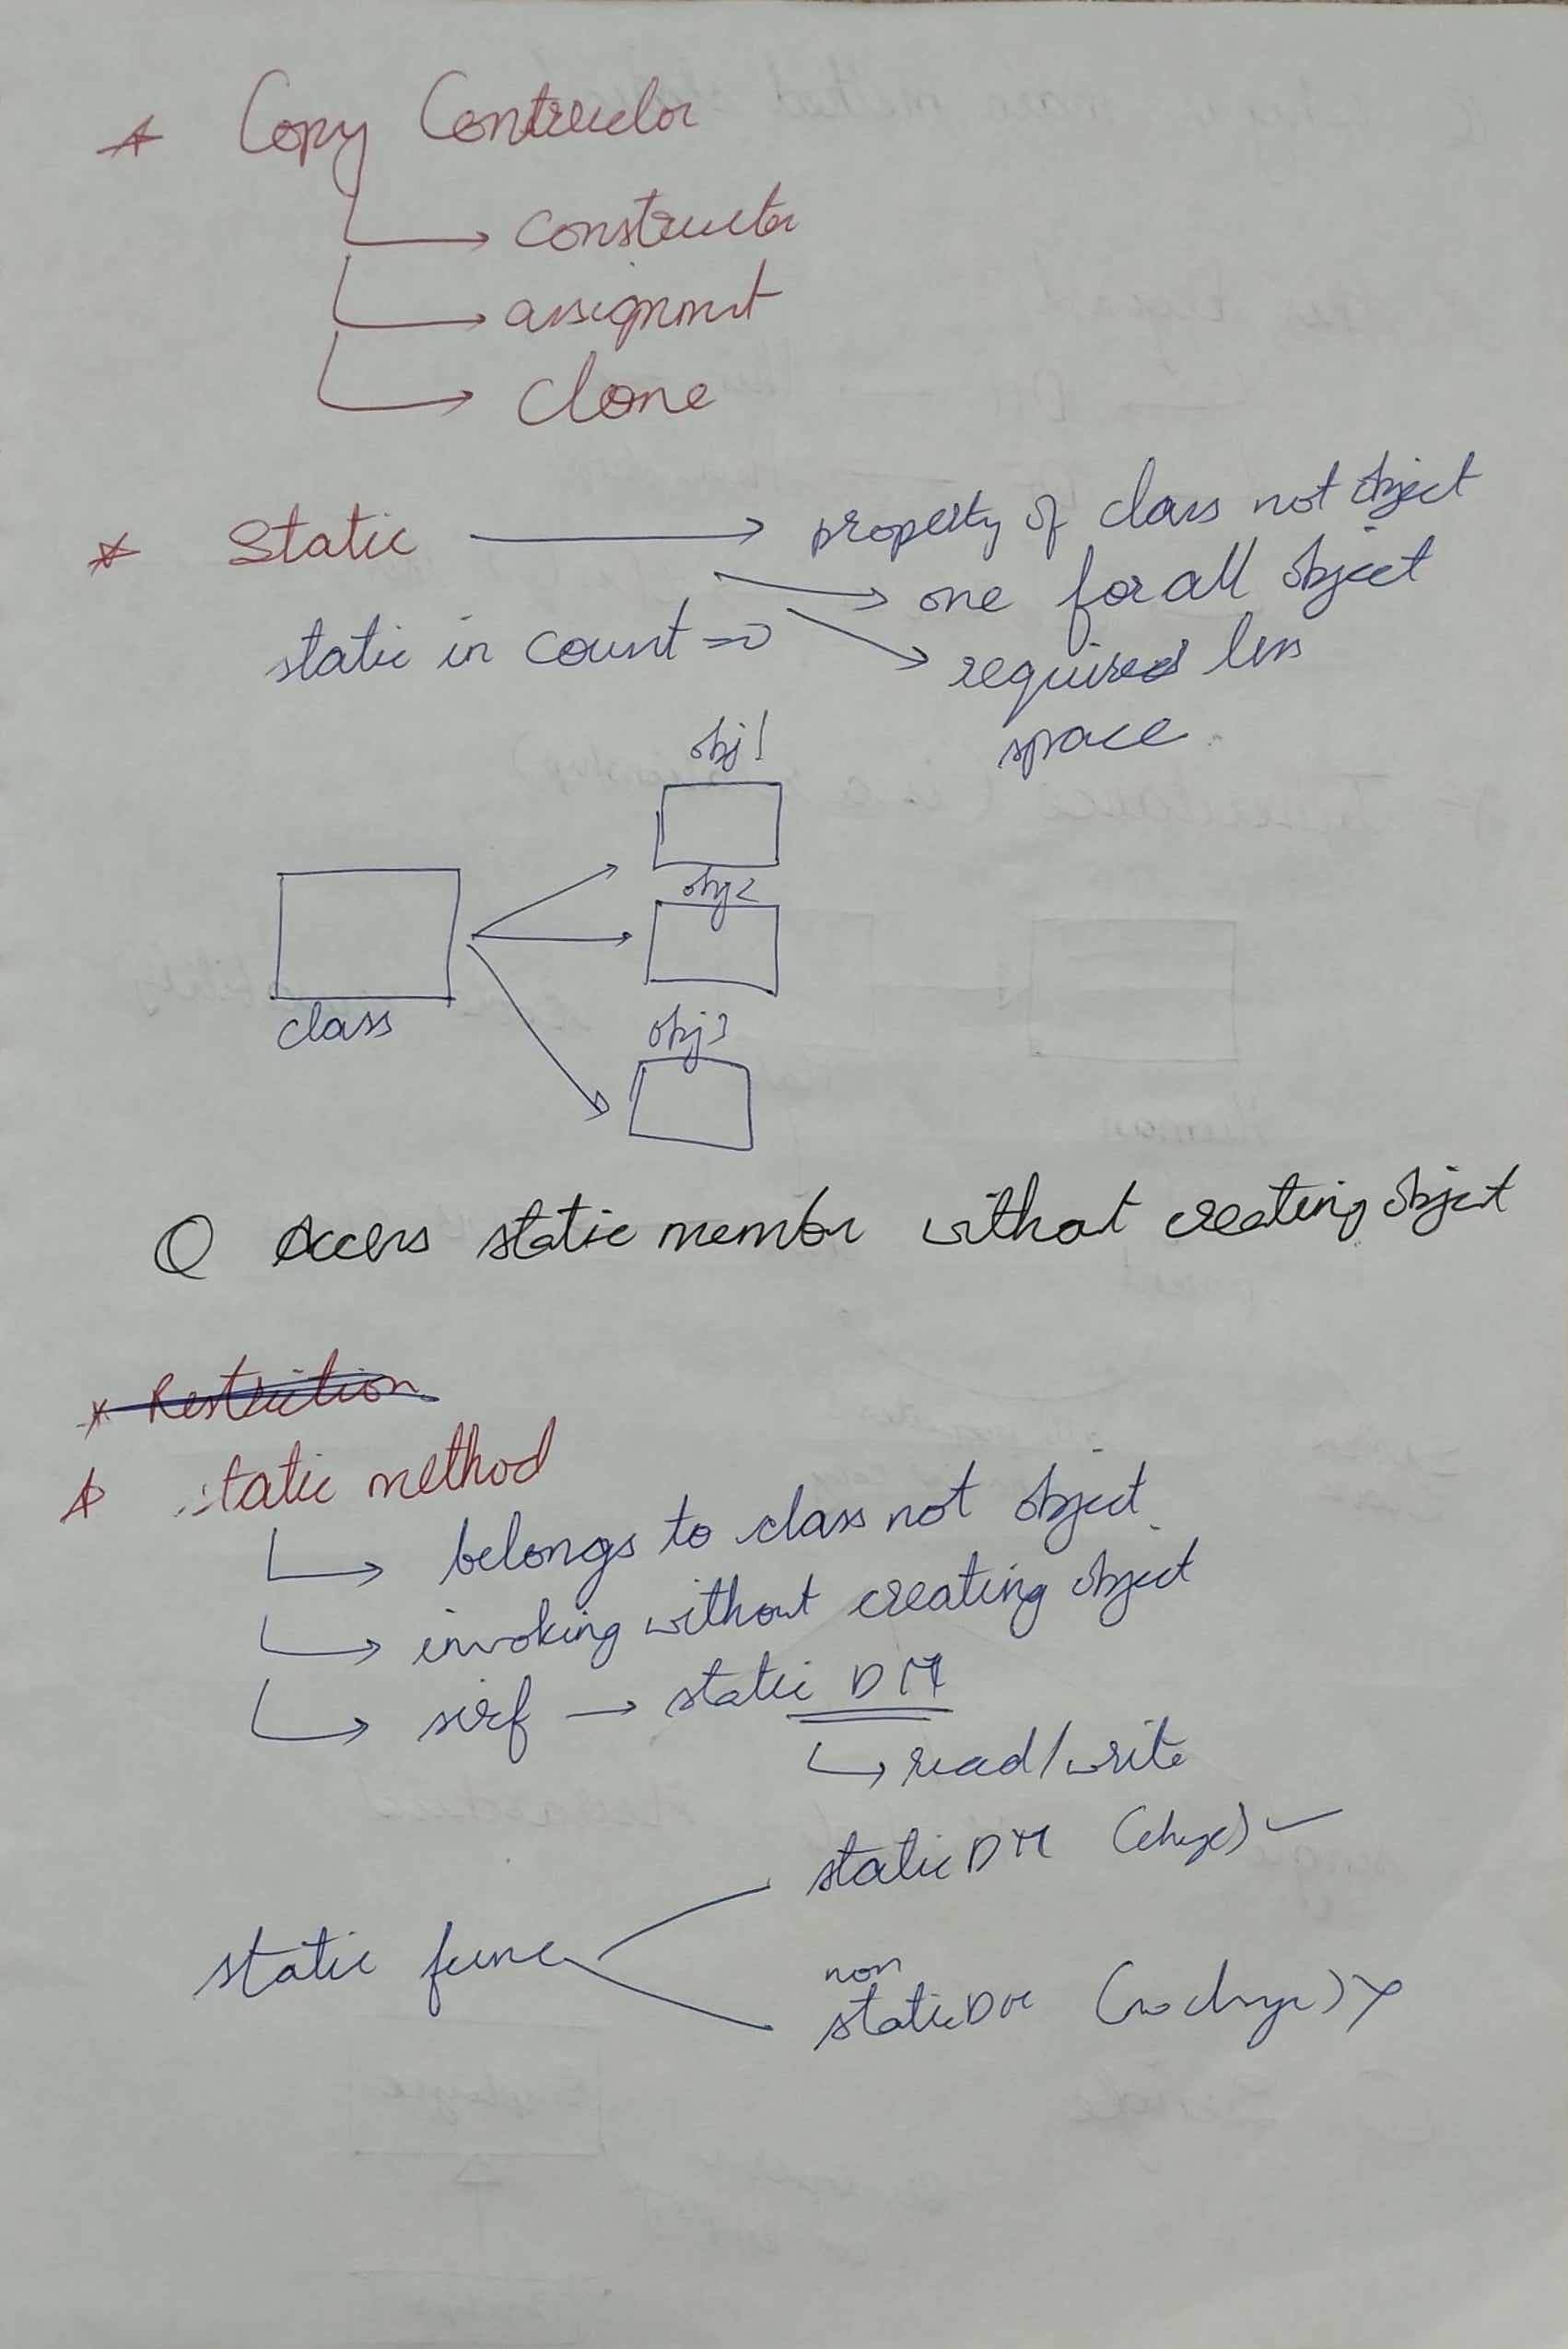 * Copy Contructor
constructor
assignment
clone
* Static → property of class not object
→ one for all object
static in count = 0
→ required less
space.
obj1
obj2
class
obj3
Q Access static member without creating object
* Restriction
* static method
belongs to class not object
invoking without creating object
sirf → static DM
read/write
static DM (change) ✓
static func
non
static DM (no change) ×